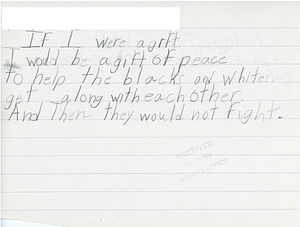 IF I were a gift
I would be a gift of peace
To help the blacks and whites
get along with each other
And Then they would not fight.
RECEIVED